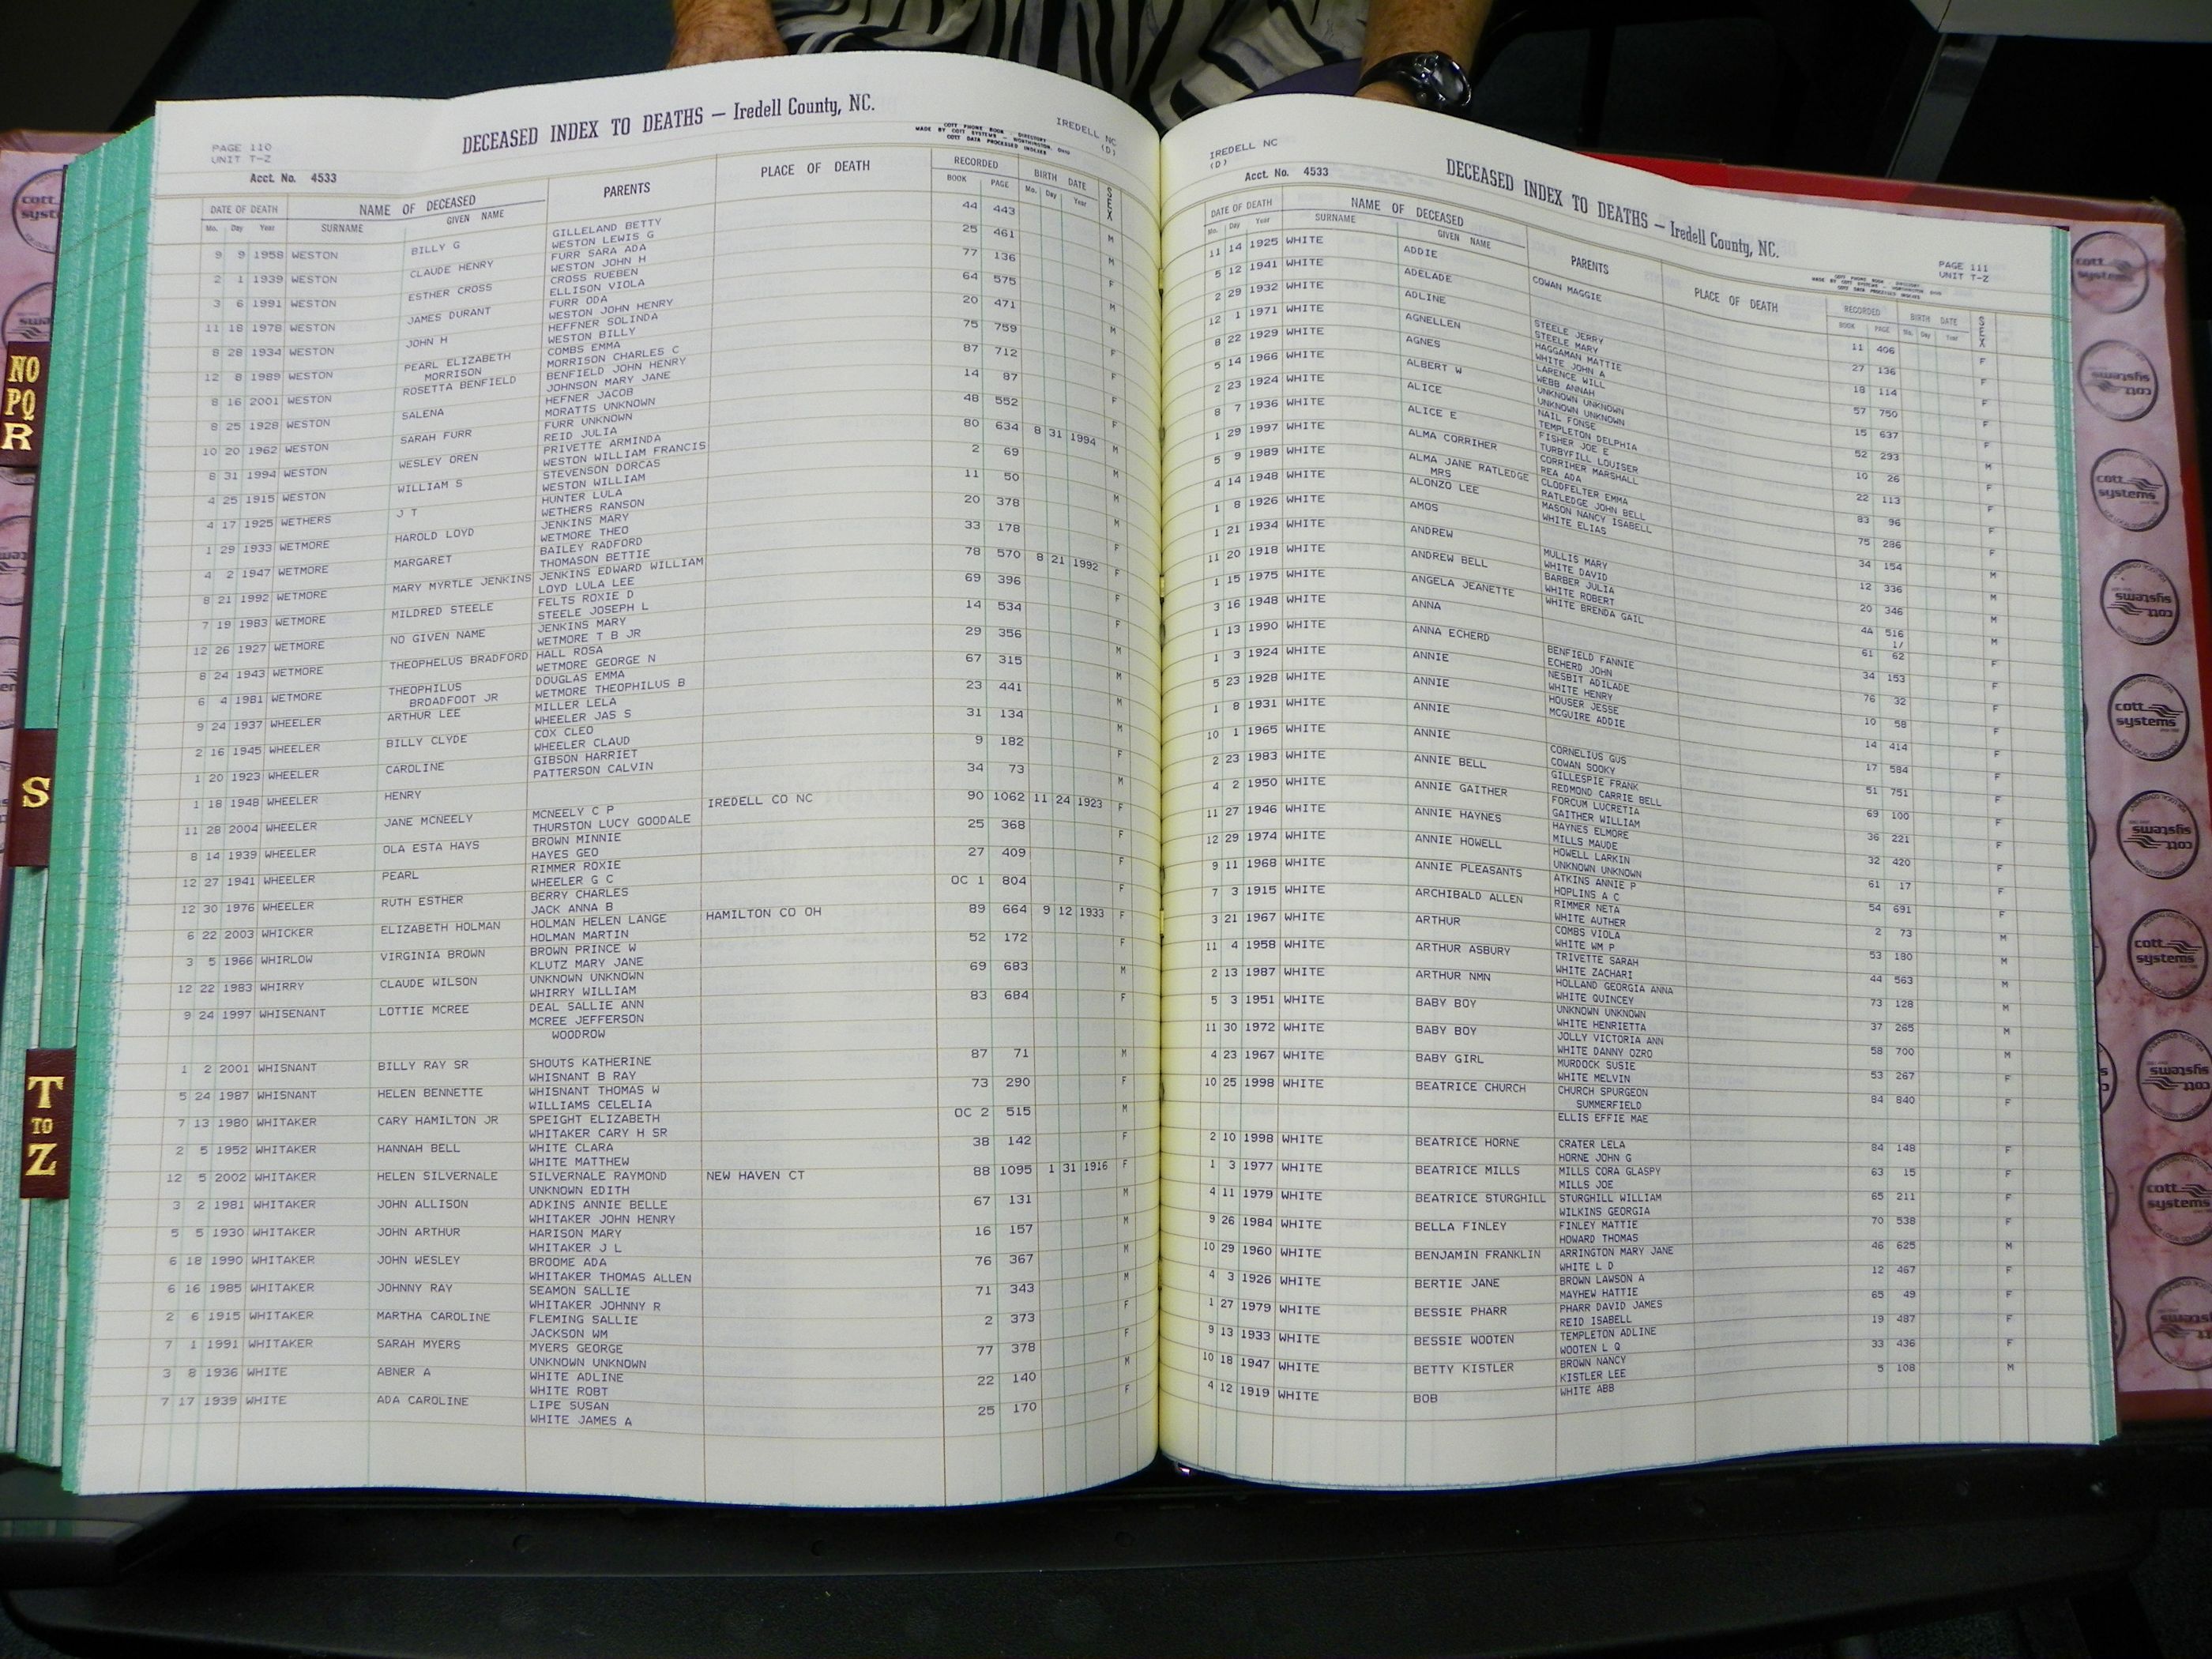 PAGE 110
UNIT T-Z
DECEASED INDEX TO DEATHS — Iredell County, NC.
COTT PHONE BOOK - DIRECTORY
MADE BY COTT SYSTEMS - WORTHINGTON, OHIO
COTT DATA PROCESSED INDEXES
IREDELL NC
(D)
Acct. No. 4533
DATE OF DEATH NAME OF DECEASED PARENTS PLACE OF DEATH RECORDED BIRTH DATE SEX
Mo. Day Year SURNAME GIVEN NAME BOOK PAGE Mo. Day Year
9 9 1958 WESTON BILLY G GILLELAND BETTY 44 443 M
WESTON LEWIS G
2 1 1939 WESTON CLAUDE HENRY FURR SARA ADA 25 461 M
WESTON JOHN H
3 6 1991 WESTON ESTHER CROSS CROSS RUEBEN 77 136 F
ELLISON VIOLA
11 18 1978 WESTON JAMES DURANT FURR ODA 64 575 M
WESTON JOHN HENRY
8 28 1934 WESTON JOHN H HEFFNER SOLINDA 20 471 M
WESTON BILLY
12 8 1989 WESTON PEARL ELIZABETH COMBS EMMA 75 759 F
MORRISON MORRISON CHARLES C
8 16 2001 WESTON ROSETTA BENFIELD BENFIELD JOHN HENRY 87 712 F
JOHNSON MARY JANE
8 25 1928 WESTON SALENA HEFNER JACOB 14 87 F
MORATTS UNKNOWN
10 20 1962 WESTON SARAH FURR FURR UNKNOWN 48 552 F
REID JULIA
8 31 1994 WESTON WESLEY OREN PRIVETTE ARMINDA 80 634 8 31 1994 M
WESTON WILLIAM FRANCIS
4 25 1915 WESTON WILLIAM S STEVENSON DORCAS 2 69 M
WESTON WILLIAM
4 17 1925 WETHERS J T HUNTER LULA 11 50 M
WETHERS RANSON
1 29 1933 WETMORE HAROLD LOYD JENKINS MARY 20 378 M
WETMORE THEO
4 2 1947 WETMORE MARGARET BAILEY RADFORD 33 178 F
THOMASON BETTIE
8 21 1992 WETMORE MARY MYRTLE JENKINS JENKINS EDWARD WILLIAM 78 570 8 21 1992 F
LOYD LULA LEE
7 19 1983 WETMORE MILDRED STEELE FELTS ROXIE D 69 396 F
STEELE JOSEPH L
12 26 1927 WETMORE NO GIVEN NAME JENKINS MARY 14 534 F
WETMORE T B JR
8 24 1943 WETMORE THEOPHELUS BRADFORD HALL ROSA 29 356 M
WETMORE GEORGE N
6 4 1981 WETMORE THEOPHILUS DOUGLAS EMMA 67 315 M
BROADFOOT JR WETMORE THEOPHILUS B
9 24 1937 WHEELER ARTHUR LEE MILLER LELA 23 441 M
WHEELER JAS S
2 16 1945 WHEELER BILLY CLYDE COX CLEO 31 134 M
WHEELER CLAUD
1 20 1923 WHEELER CAROLINE GIBSON HARRIET 9 182 F
PATTERSON CALVIN
1 18 1948 WHEELER HENRY 34 73 M
11 28 2004 WHEELER JANE MCNEELY MCNEELY C P IREDELL CO NC 90 1062 11 24 1923 F
THURSTON LUCY GOODALE
8 14 1939 WHEELER OLA ESTA HAYS BROWN MINNIE 25 368 F
HAYES GEO
12 27 1941 WHEELER PEARL RIMMER ROXIE 27 409 F
WHEELER G C
12 30 1976 WHEELER RUTH ESTHER BERRY CHARLES OC 1 804 F
JACK ANNA B
6 22 2003 WHICKER ELIZABETH HOLMAN HOLMAN HELEN LANGE HAMILTON CO OH 89 664 9 12 1933 F
HOLMAN MARTIN
3 5 1966 WHIRLOW VIRGINIA BROWN BROWN PRINCE W 52 172 F
KLUTZ MARY JANE
12 22 1983 WHIRRY CLAUDE WILSON UNKNOWN UNKNOWN 69 683 M
WHIRRY WILLIAM
9 24 1997 WHISENANT LOTTIE MCREE DEAL SALLIE ANN 83 684 F
MCREE JEFFERSON
WOODROW
1 2 2001 WHISNANT BILLY RAY SR SHOUTS KATHERINE 87 71 M
WHISNANT B RAY
5 24 1987 WHISNANT HELEN BENNETTE WHISNANT THOMAS W 73 290 F
WILLIAMS CELELIA
7 13 1980 WHITAKER CARY HAMILTON JR SPEIGHT ELIZABETH OC 2 515 M
WHITAKER CARY H SR
2 5 1952 WHITAKER HANNAH BELL WHITE CLARA 38 142 F
WHITE MATTHEW
12 5 2002 WHITAKER HELEN SILVERNALE SILVERNALE RAYMOND NEW HAVEN CT 88 1095 1 31 1916 F
UNKNOWN EDITH
3 2 1981 WHITAKER JOHN ALLISON ADKINS ANNIE BELLE 67 131 M
WHITAKER JOHN HENRY
5 5 1930 WHITAKER JOHN ARTHUR HARISON MARY 16 157 M
WHITAKER J L
6 18 1990 WHITAKER JOHN WESLEY BROOME ADA 76 367 M
WHITAKER THOMAS ALLEN
6 16 1985 WHITAKER JOHNNY RAY SEAMON SALLIE 71 343 M
WHITAKER JOHNNY R
2 6 1915 WHITAKER MARTHA CAROLINE FLEMING SALLIE 2 373 F
JACKSON WM
7 1 1991 WHITAKER SARAH MYERS MYERS GEORGE 77 378 F
UNKNOWN UNKNOWN
3 8 1936 WHITE ABNER A WHITE ADLINE 22 140 M
WHITE ROBT
7 17 1939 WHITE ADA CAROLINE LIPE SUSAN 25 170 F
WHITE JAMES A
IREDELL NC
(D)
Acct. No. 4533
DECEASED INDEX TO DEATHS — Iredell County, NC.
PAGE 111
UNIT T-Z
DATE OF DEATH NAME OF DECEASED PARENTS PLACE OF DEATH RECORDED BIRTH DATE SEX
Mo. Day Year SURNAME GIVEN NAME BOOK PAGE Mo. Day Year
11 14 1925 WHITE ADDIE COWAN MAGGIE 11 406 F
5 12 1941 WHITE ADELADE 27 136
2 29 1932 WHITE ADLINE STEELE JERRY 18 114 F
STEELE MARY
12 1 1971 WHITE AGNELLEN HAGGAMAN MATTIE 57 750 F
WHITE JOHN A
8 22 1929 WHITE AGNES LARENCE WILL 15 637 F
WEBB ANNAH
5 14 1966 WHITE ALBERT W UNKNOWN UNKNOWN 52 293 M
UNKNOWN UNKNOWN
2 23 1924 WHITE ALICE NAIL FONSE 10 26 F
TEMPLETON DELPHIA
8 7 1936 WHITE ALICE E FISHER JOE E 22 113 F
TURBYFILL LOUISER
1 29 1997 WHITE ALMA CORRIHER CORRIHER MARSHALL 83 96 F
REA ADA
5 9 1989 WHITE ALMA JANE RATLEDGE CLODFELTER EMMA 75 286 F
MRS RATLEDGE JOHN BELL
4 14 1948 WHITE ALONZO LEE MASON NANCY ISABELL 34 154 M
WHITE ELIAS
1 8 1926 WHITE AMOS 12 336 M
1 21 1934 WHITE ANDREW MULLIS MARY 20 346 M
WHITE DAVID
11 20 1918 WHITE ANDREW BELL BARBER JULIA 4A 516
WHITE ROBERT 1/
1 15 1975 WHITE ANGELA JEANETTE WHITE BRENDA GAIL 61 62 F
3 16 1948 WHITE ANNA 34 153 F
1 13 1990 WHITE ANNA ECHERD BENFIELD FANNIE 76 32 F
ECHERD JOHN
1 3 1924 WHITE ANNIE NESBIT ADILADE 10 58 F
WHITE HENRY
5 23 1928 WHITE ANNIE HOUSER JESSE 14 414 F
MCGUIRE ADDIE
1 8 1931 WHITE ANNIE 17 584 F
10 1 1965 WHITE ANNIE CORNELIUS GUS 51 751 F
COWAN SOOKY
2 23 1983 WHITE ANNIE BELL GILLESPIE FRANK 69 100 F
REDMOND CARRIE BELL
4 2 1950 WHITE ANNIE GAITHER FORCUM LUCRETIA 36 221 F
GAITHER WILLIAM
11 27 1946 WHITE ANNIE HAYNES HAYNES ELMORE 32 420 F
MILLS MAUDE
12 29 1974 WHITE ANNIE HOWELL HOWELL LARKIN 61 17 F
UNKNOWN UNKNOWN
9 11 1968 WHITE ANNIE PLEASANTS ATKINS ANNIE P 54 691 F
HOPLINS A C
7 3 1915 WHITE ARCHIBALD ALLEN RIMMER NETA 2 73 M
WHITE AUTHER
3 21 1967 WHITE ARTHUR COMBS VIOLA 53 180 M
WHITE WM P
11 4 1958 WHITE ARTHUR ASBURY TRIVETTE SARAH 44 563 M
WHITE ZACHARI
2 13 1987 WHITE ARTHUR NMN HOLLAND GEORGIA ANNA 73 128 M
WHITE QUINCEY
5 3 1951 WHITE BABY BOY UNKNOWN UNKNOWN 37 265 M
WHITE HENRIETTA
11 30 1972 WHITE BABY BOY JOLLY VICTORIA ANN 58 700 M
WHITE DANNY OZRO
4 23 1967 WHITE BABY GIRL MURDOCK SUSIE 53 267 F
WHITE MELVIN
10 25 1998 WHITE BEATRICE CHURCH CHURCH SPURGEON 84 840 F
SUMMERFIELD
ELLIS EFFIE MAE
2 10 1998 WHITE BEATRICE HORNE CRATER LELA 84 148 F
HORNE JOHN G
1 3 1977 WHITE BEATRICE MILLS MILLS CORA GLASPY 63 15 F
MILLS JOE
4 11 1979 WHITE BEATRICE STURGHILL STURGHILL WILLIAM 65 211 F
WILKINS GEORGIA
9 26 1984 WHITE BELLA FINLEY FINLEY MATTIE 70 538 F
HOWARD THOMAS
10 29 1960 WHITE BENJAMIN FRANKLIN ARRINGTON MARY JANE 46 625 M
WHITE L D
4 3 1926 WHITE BERTIE JANE BROWN LAWSON A 12 467 F
MAYHEW HATTIE
1 27 1979 WHITE BESSIE PHARR PHARR DAVID JAMES 65 49 F
REID ISABELL
9 13 1933 WHITE BESSIE WOOTEN TEMPLETON ADLINE 19 487 F
WOOTEN L Q
10 18 1947 WHITE BETTY KISTLER BROWN NANCY 33 436 F
KISTLER LEE
4 12 1919 WHITE BOB WHITE ABB 5 108 M
NO
PQ
R
S
T
TO
Z
cott
systems